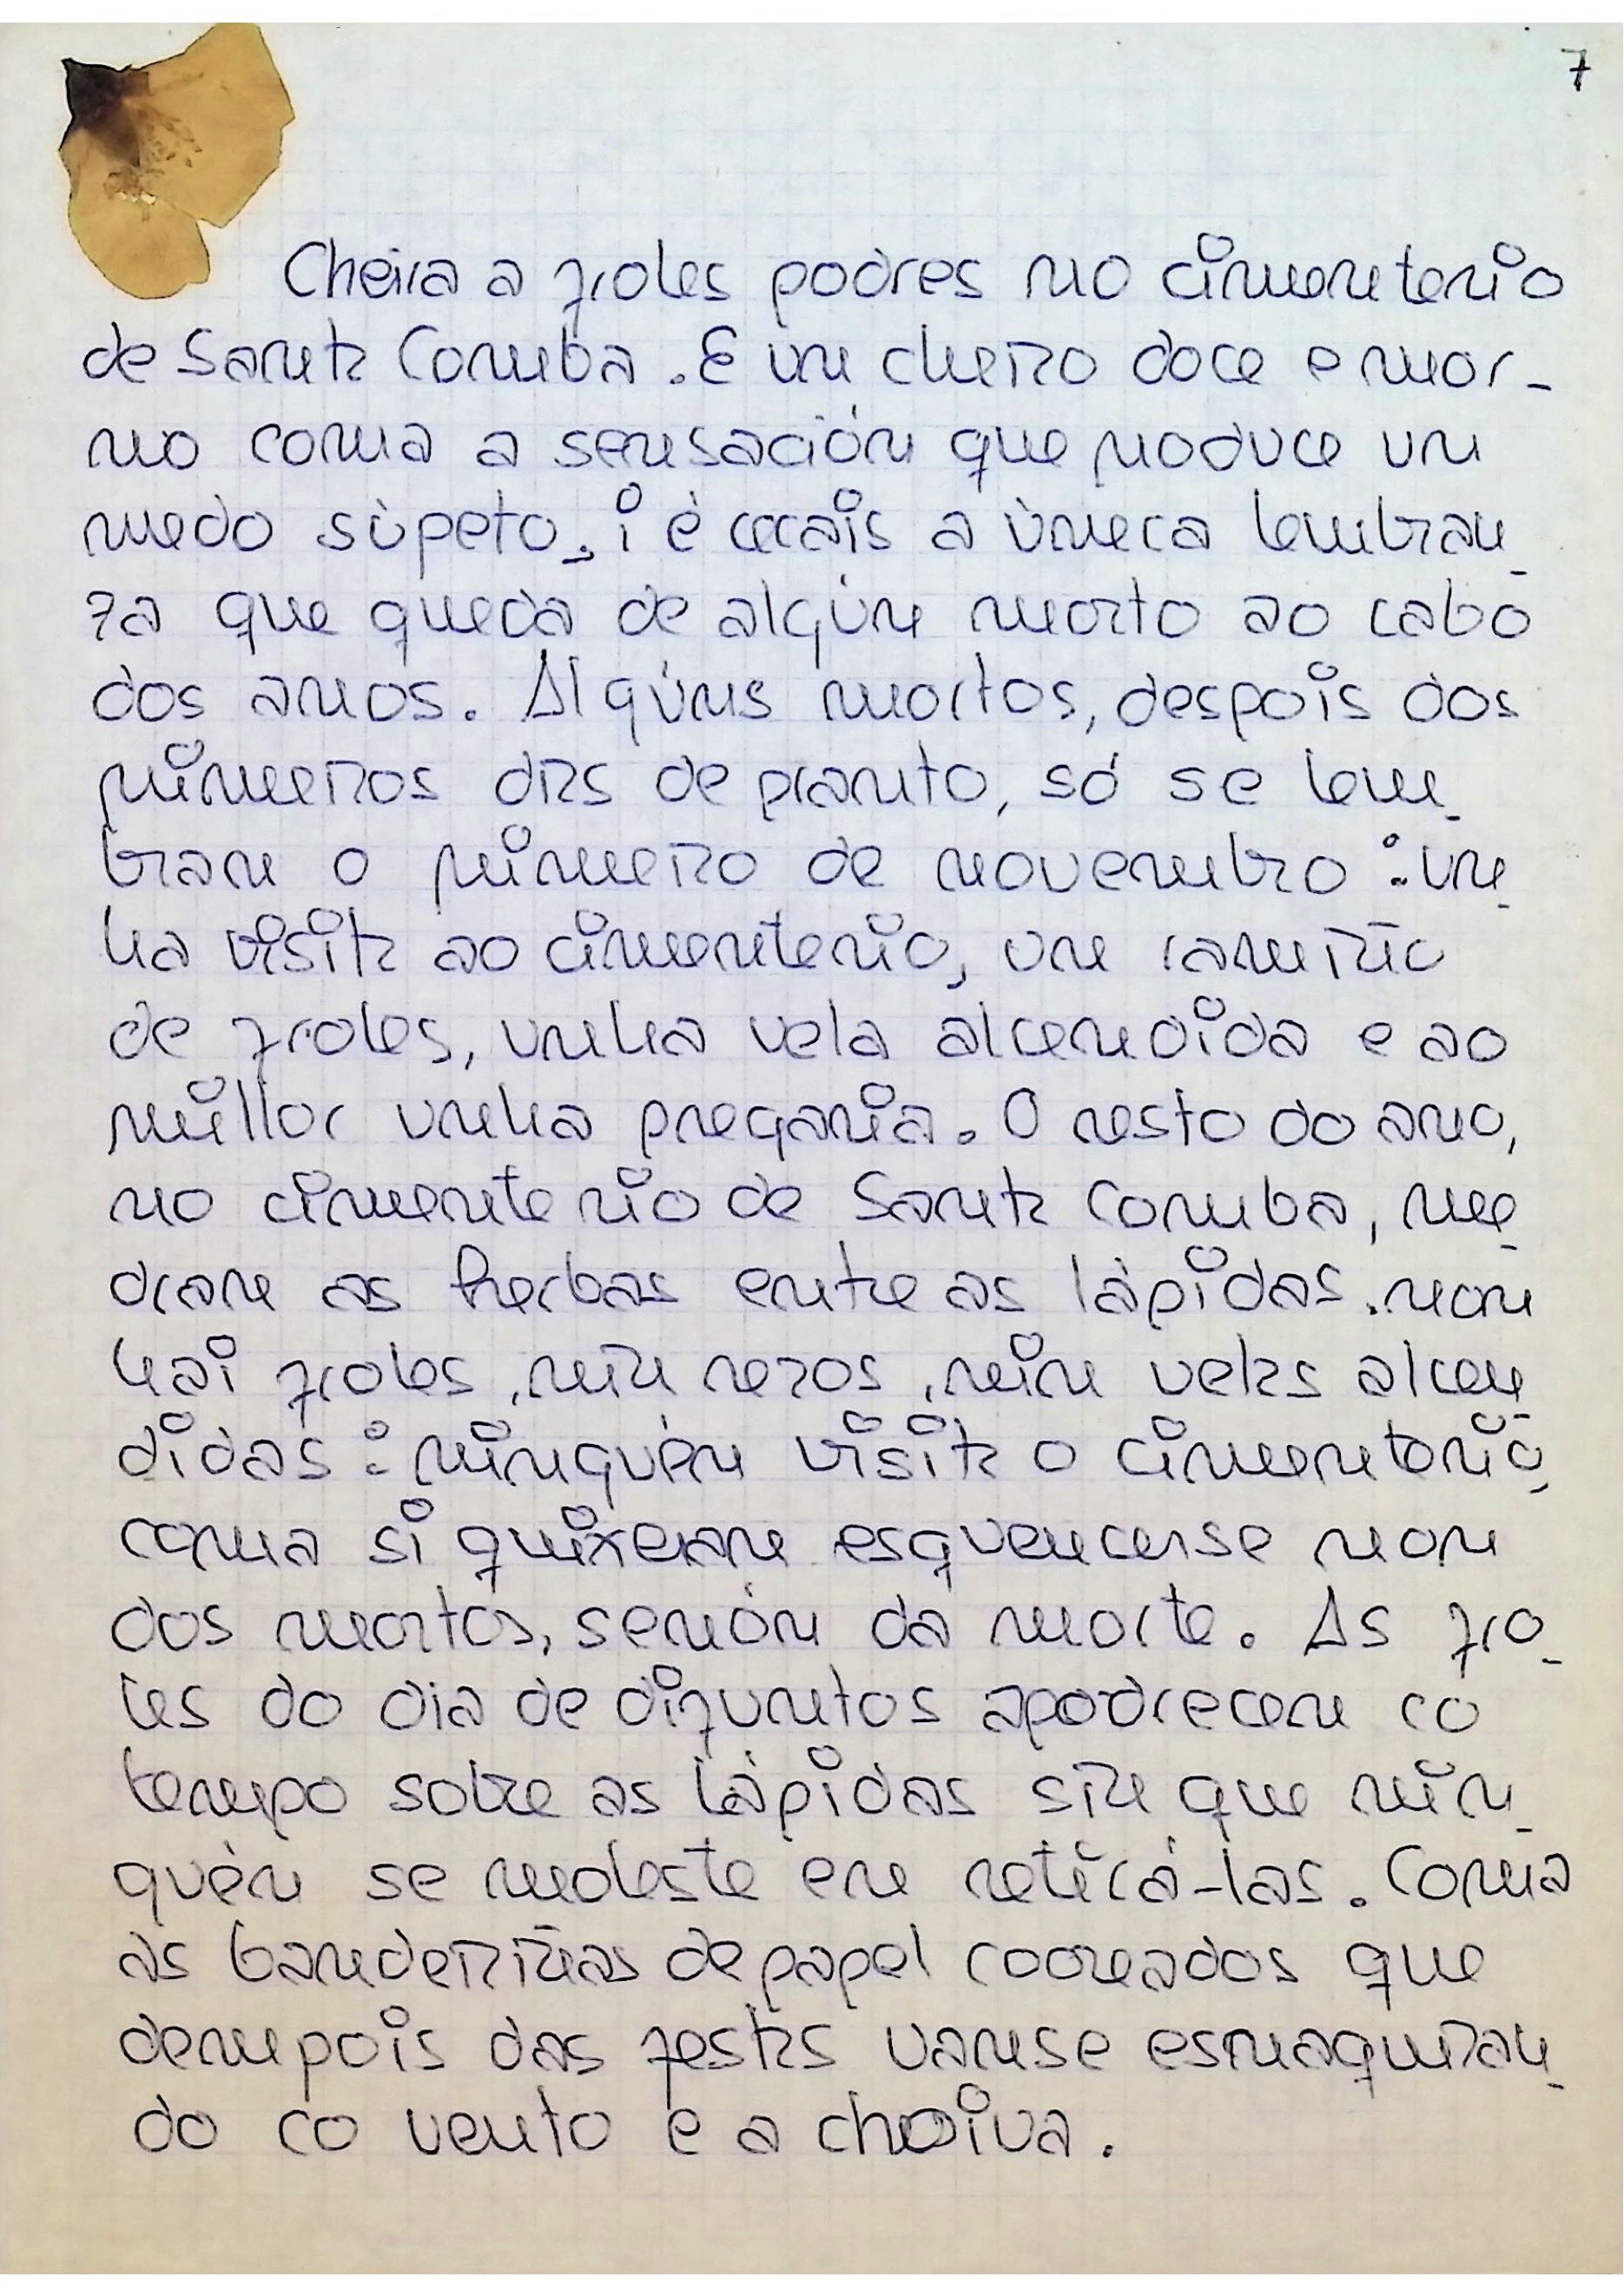 7
Cheira a froles podres no cimenterio
de Santa Comba. E un cheiro doce e mor-
no coma a sensación que produce un
medo súpeto, i é cecais a úneca lembran-
za que queda de algún morto ao cabo
dos anos. Algúns mortos, despois dos
primeiros dias de pranto, só se lem-
bran o primeiro de novembro: un-
ha visita ao cimenterio, un ramiño
de froles, unha vela alcendida e ao
millor unha pregaria. O resto do ano,
no cimenterio de Santa Comba, me-
dran as herbas entre as lápidas. Non
hai froles, nin rezos, nin velas alcen-
didas: ninguén visita o cimenterio,
coma si quixeran esquencerse non
dos mortos, senón da morte. As fro-
les do dia de difuntos apodrecen co
tempo sobre as lápidas sin que nin-
guén se moleste en retirá-las. Coma
as bandeiriñas de papel cooreados que
dempois das festas vanse esmaquiñan-
do co vento e a choiva.